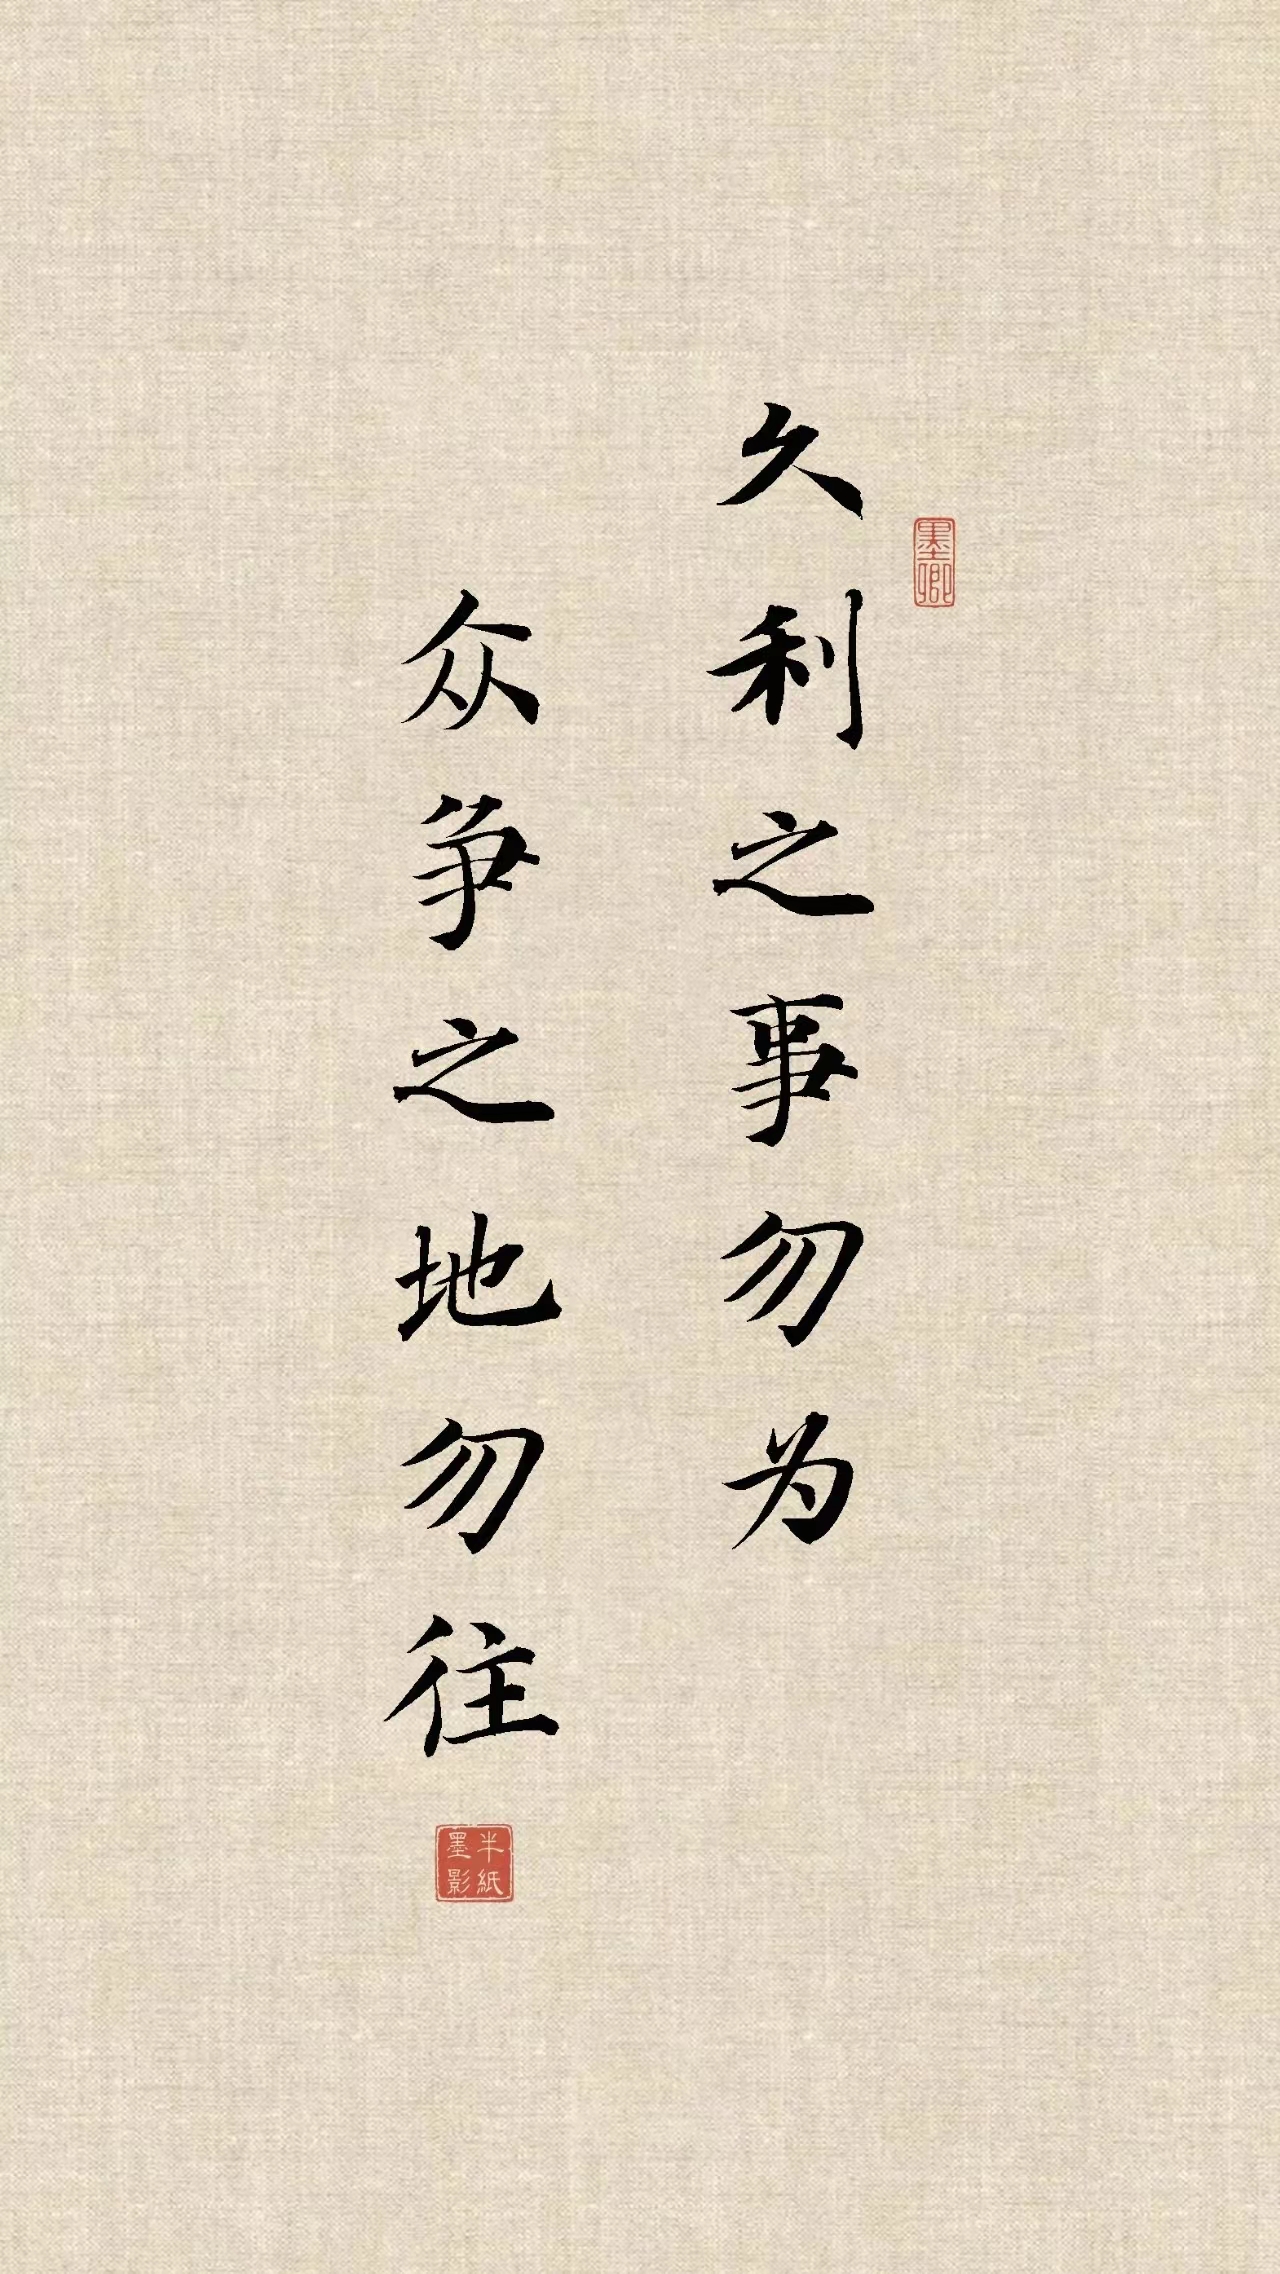 久利之事勿为
众争之地勿往
墨卿
半紙
墨影